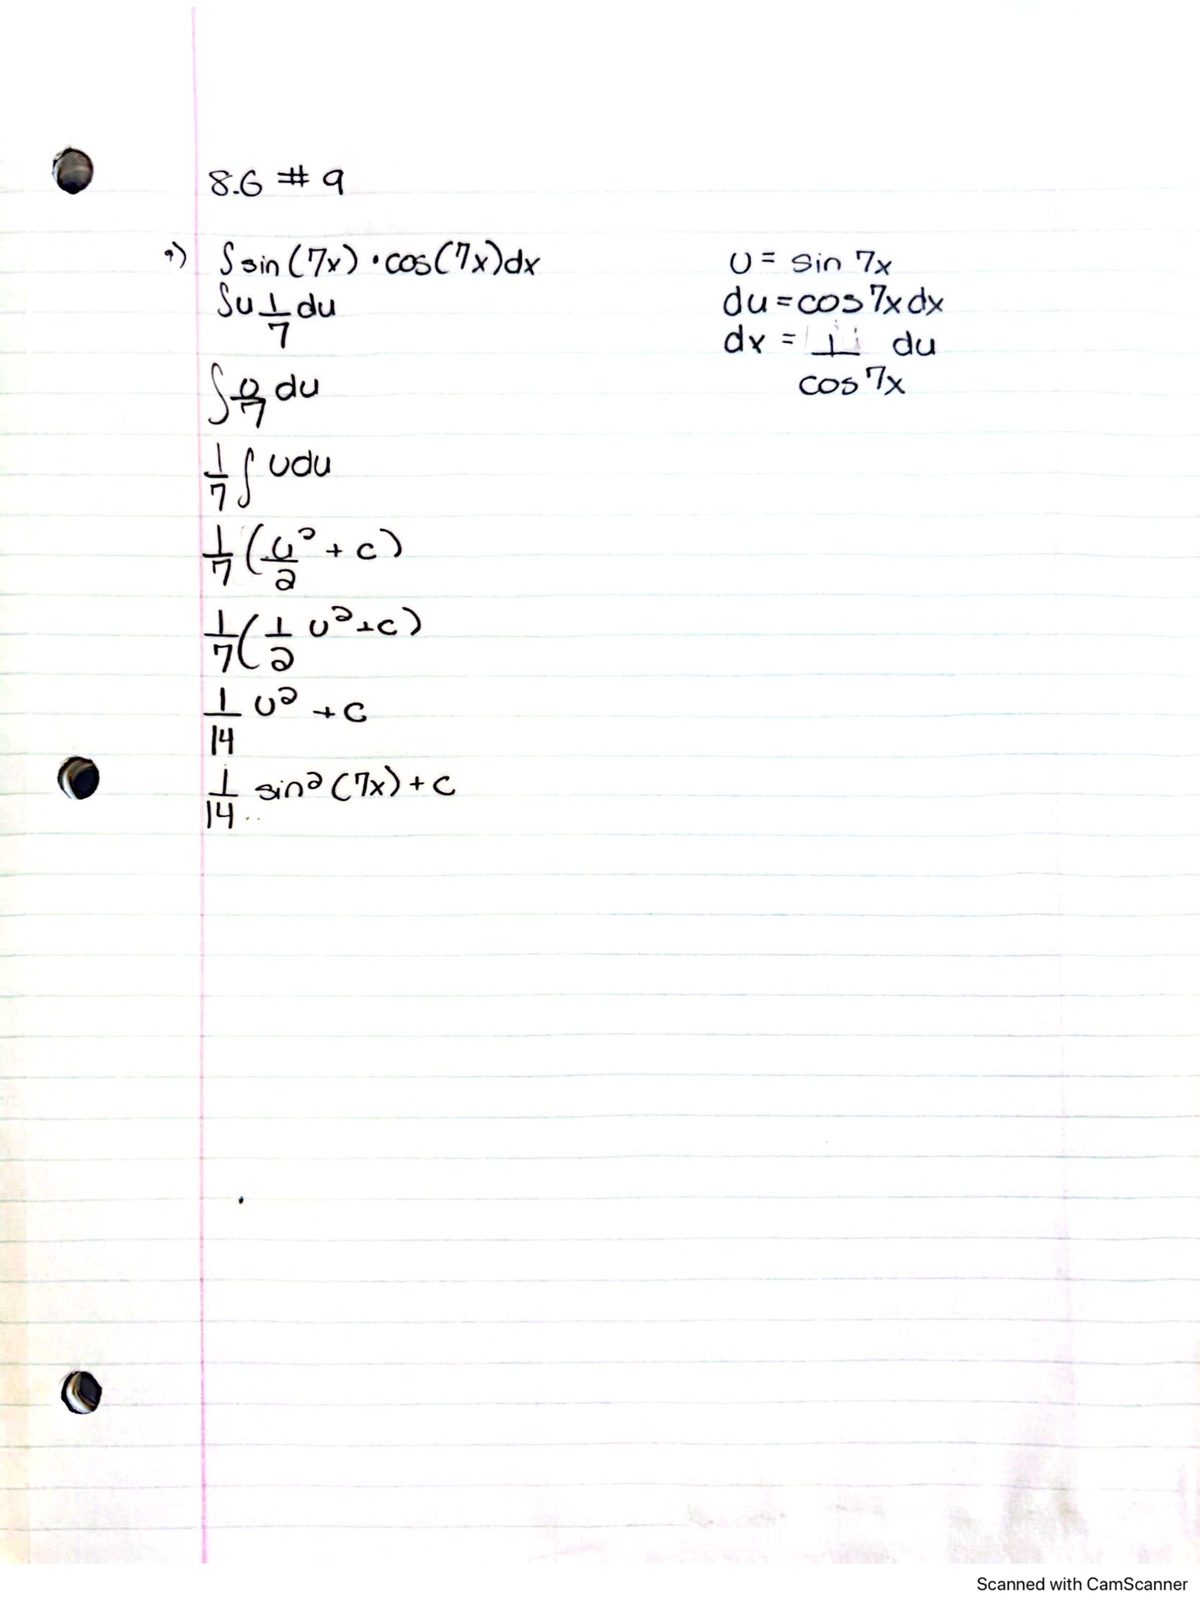 8.6 # 9
9) ∫sin(7x)·cos(7x)dx
∫u 1/7 du
∫u/7 du
1/7 ∫ udu
1/7 (u²/2 + c)
1/7 (1/2 u² + c)
1/14 u² + c
1/14 sin²(7x) + c
u = sin 7x
du = cos 7x dx
dx = 1/cos 7x du
Scanned with CamScanner